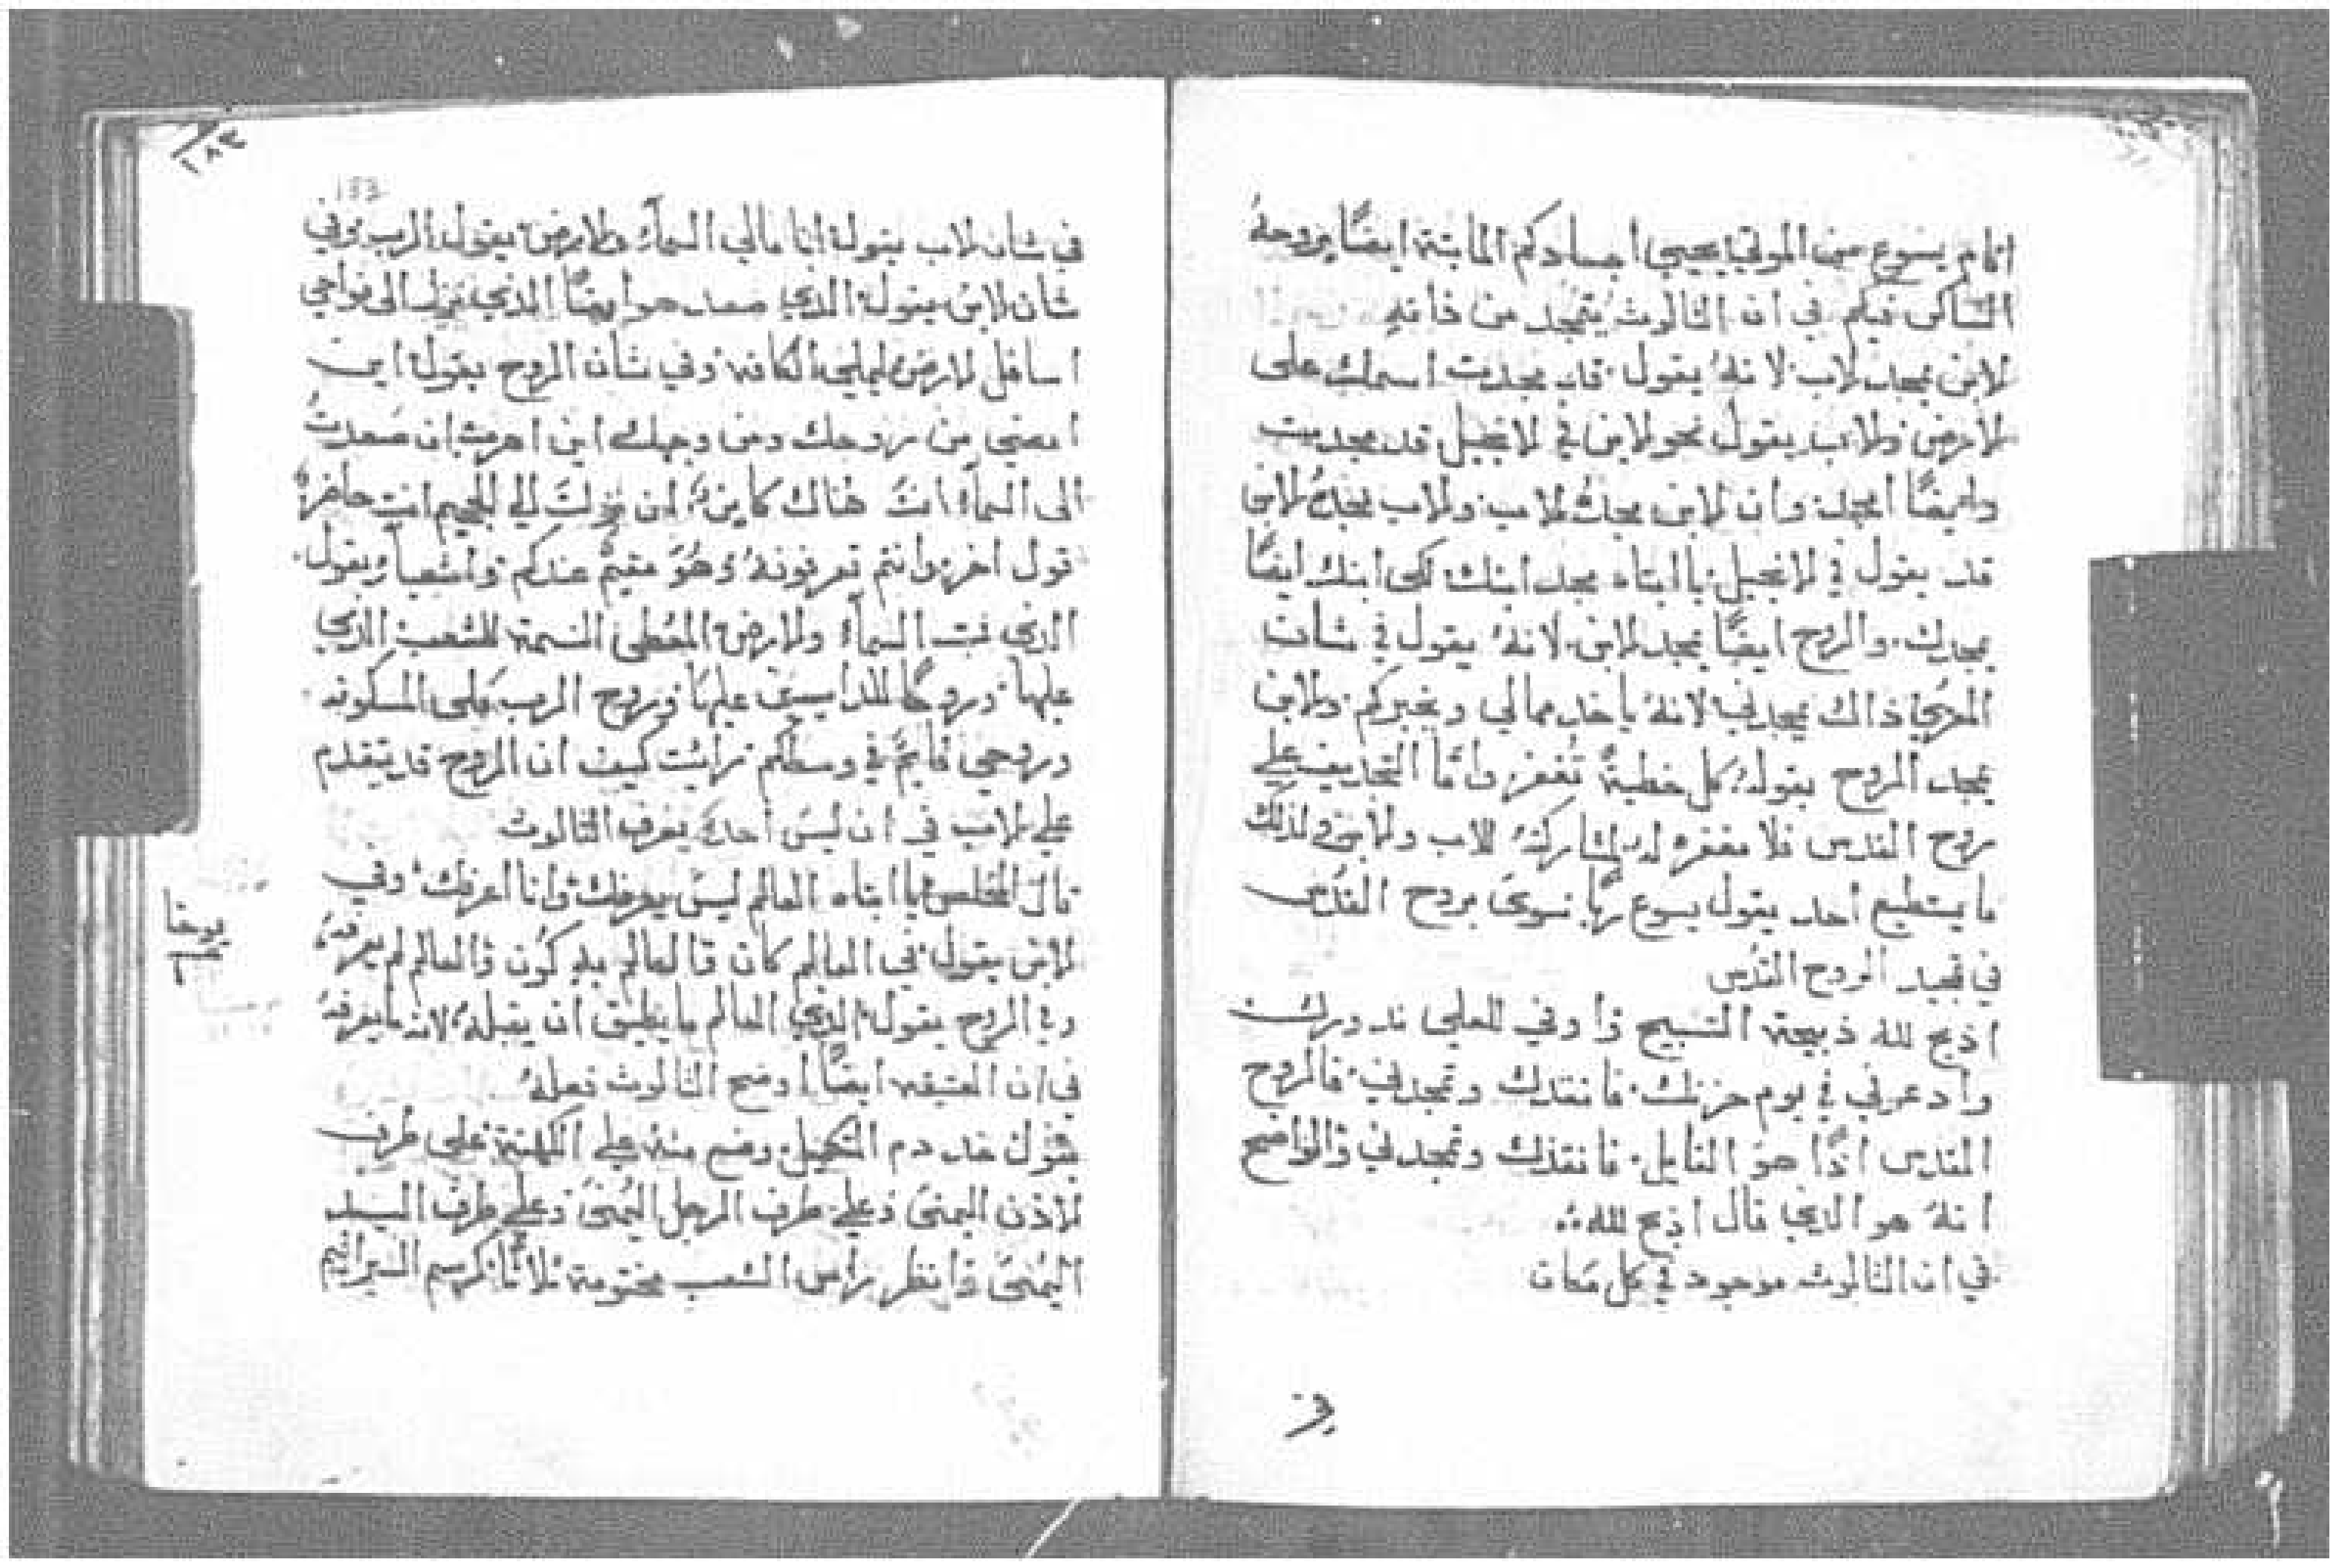 اقام يسوع من الموتى يحيي اجسادكم المايتة ايضًا بروحهُ
الساكن فيكم في ان الثالوث يتمجد من ذاتهِ
لابن يمجد لاب لانهُ يقول قد مجدت اسمك على
لارض ولاب يقول نحو لابن في لانجيل قد مجدت
وايضًا امجد وان لابن يمجد لاب ولاب يمجد لابن
قد يقول في لانجيل يا ابتاه مجد ابنك لكي ابنك ايضًا
يمجدك والروح ايضًا يمجد لابن لانهُ يقول في شان
المعزي ذاك يمجدني لانهُ ياخد مما لي ويخبركم ولابن
يمجد الروح بقوله كل خطية تُغفر واما التجديف على
روح القدس فلا مغفره له لمشاركته للاب ولابن ولذلك
ما يستطيع أحد يقول يسوع ربًا سوى بروح القدس
في تمجيد الروح القدس
اذبح لله ذبيحة التسبيح وأوفي للعلي ندورك
وادعوني في يوم حزنك فانقدك وتمجدني فالروح
القدس اذًا هو القايل فانقذك وتمجدني والواضح
انهُ هو الذي قال اذبح لله
في ان الثالوث موجود في كل مكان
١٨٣
في شان لاب يقول انا مالي السمآء ولارض يقول الرب وفي
شان لابن يقول الذي صعد هو ايضًا الذي نزل الى نواحي
اسافل لارض ليملي الكافة وفي شان الروح يقول اين
امضي من روحك ومن وجهك اين اهرب ان صعدتُ
الى السمآء انتَ هناك كاين ان نزلت الى الجحيم انت حاضر
قول اخر وانتم تعرفونهُ وهُوَ مقيمٌ عندكم واشعيآء يقول
الذي ثبت السمآء ولارض المعُطي النسمة للشعب الذي
عليها وروحًا للدايسين عليها وروح الرب ملى المسكونه
وروحي قايمٌ في وسطكم رائيت كيف ان الروح قد يتقدم
على لاب في ان ليسَ أحد يعرف الثالوث
قال المخلص يا ابتاه العالم ليسَ يعرفك وانا اعرفك وفي
لابن يقول في العالم كان والعالم بهِ كوُن والعالم لم يعرفهُ
وفي الروح يقول الذي العالم ما يطيق ان يقبلهُ لانه ما يعرفهُ
يوحنا
في ان العتيقه ايضًا أوضح الثالوث فعلهُ
يقول خد دم التكميل وضع منه على الكهنة على طرف
لاذن اليمنىَ وعلى طرف الرجل اليُمنىَ وعلى طرف اليد
اليُمنىَ وانظر راس الشعب مختومة ثلاثًا كرسم السيرافيم